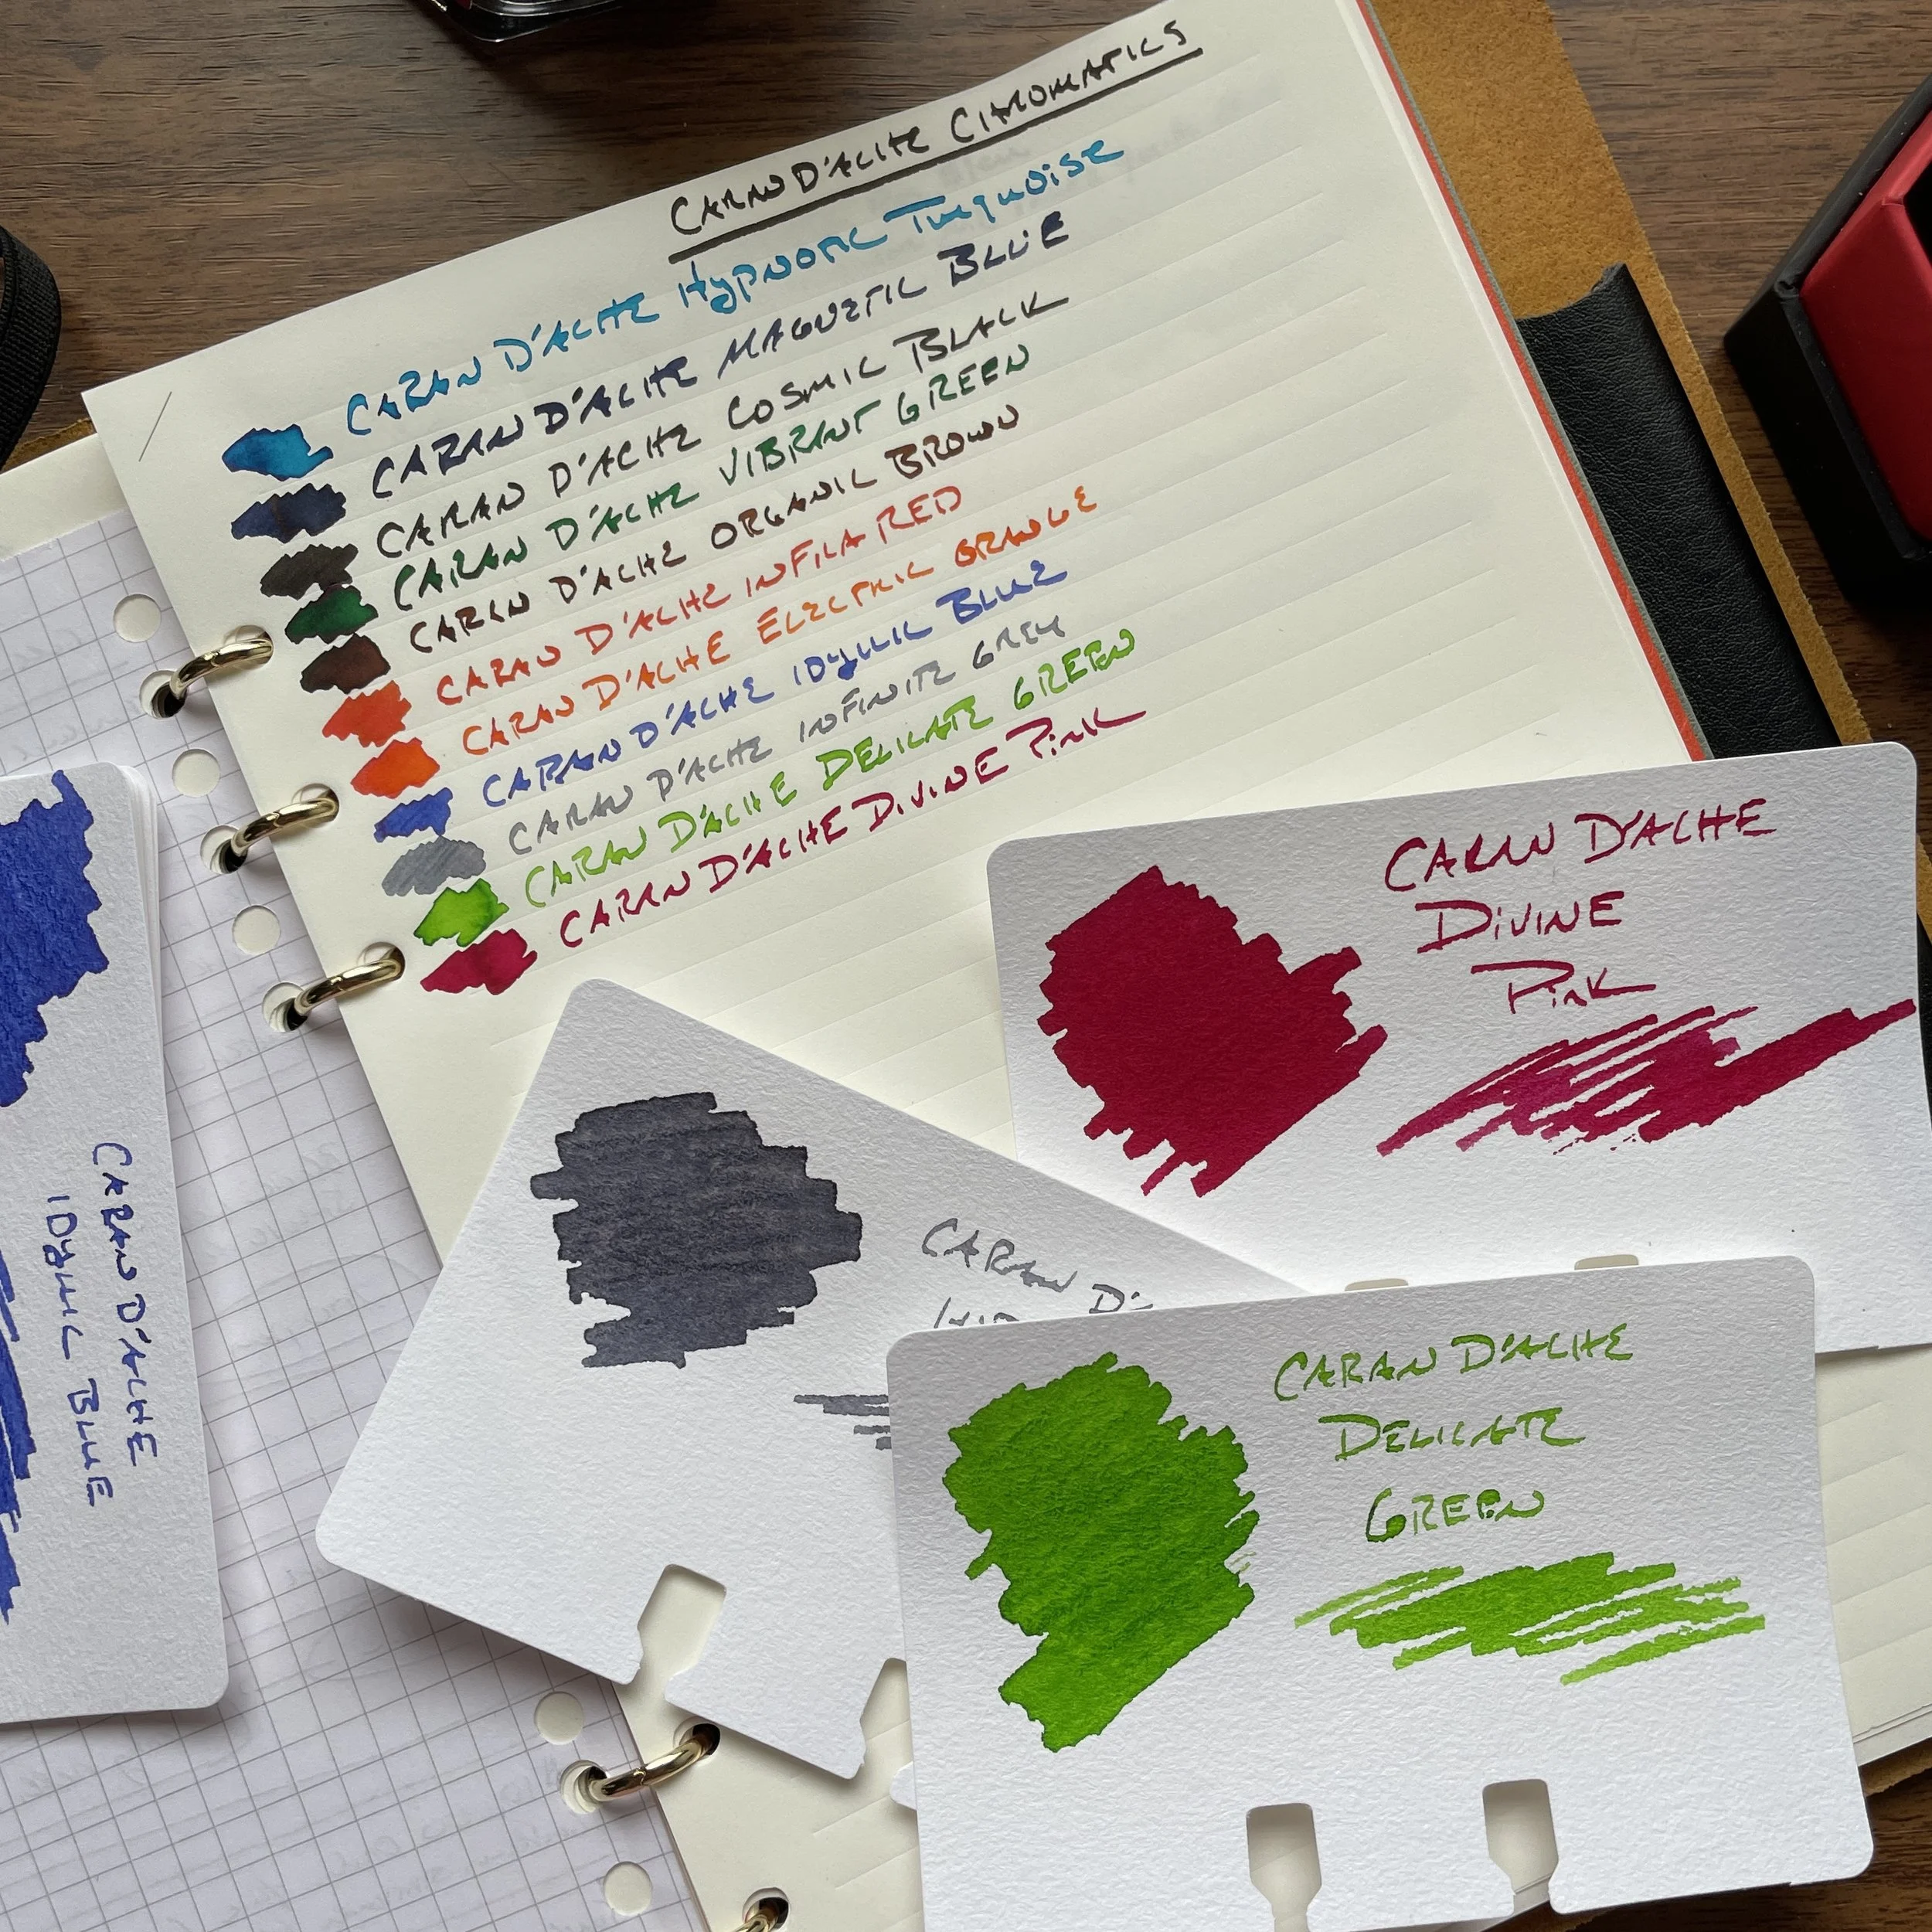 CARAN D'ACHE CHROMATICS
CARAN D'ACHE Hypnotic Turquoise
CARAN D'ACHE MAGNETIC BLUE
CARAN D'ACHE COSMIC BLACK
CARAN D'ACHE VIBRANT GREEN
CARAN D'ACHE ORGANIC BROWN
CARAN D'ACHE INFRA RED
CARAN D'ACHE ELECTRIC ORANGE
CARAN D'ACHE IDyllic BLUE
CARAN D'ACHE INFINITE GREY
CARAN D'ACHE DELICATE GREEN
CARAN D'ACHE DIVINE PinK
CARAN D'ACHE
DIVINE
PinK
CARAN D'ACHE
IDyllic BLUE
CARAN D'
CARAN D'ACHE
DELICATE
GREEN